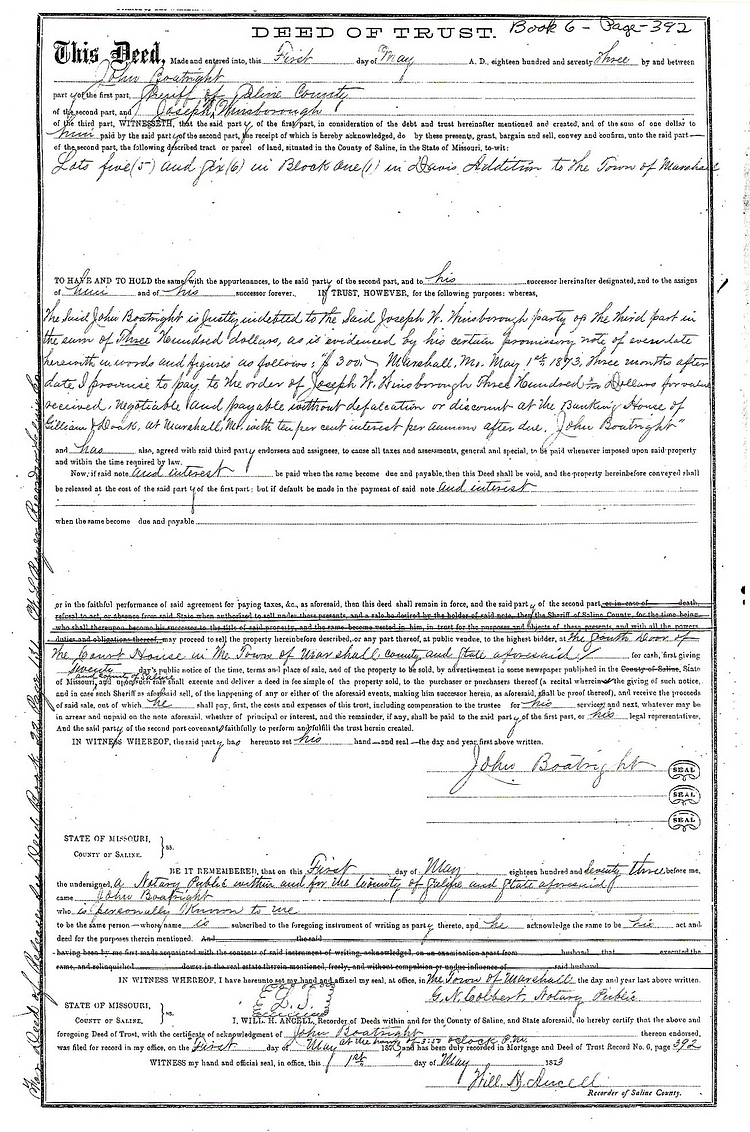 DEED OF TRUST. Book 6 - Page - 392
This Deed, Made and entered into, this First day of May A. D., eighteen hundred and seventy three by and between
John Boatright
party of the first part, Sheriff of Saline County
of the second part, and Joseph Winsborough
of the third part, WITNESSETH, that the said party of the first part, in consideration of the debt and trust hereinafter mentioned and created, and of the sum of one dollar to
him paid by the said party of the second part, the receipt of which is hereby acknowledged, do by these presents, grant, bargain and sell, convey and confirm, unto the said part
of the second part, the following described tract or parcel of land, situated in the County of Saline, in the State of Missouri, to-wit:
Lots five (5) and Six (6) in Block One (1) in Davis Addition to the Town of Marshall
TO HAVE AND TO HOLD the same, with the appurtenances, to the said party of the second part, and to his successor hereinafter designated, and to the assigns
of him and of his successor forever. IN TRUST, HOWEVER, for the following purposes: whereas,
The Said John Boatright is justly indebted to the Said Joseph W. Winsborough party of the third part in
the sum of Three Hundred dollars, as is evidenced by his certain promissory note of even date
herewith in words and figures as follows: "$300. Marshall, Mo. May 1st 1873. Three months after
date I promise to pay to the order of Joseph W. Winsborough Three Hundred Dollars for value
received. Negotiable and payable without defalcation or discount at the Banking House of
at Marshall Mo. with ten per cent interest per annum after due. John Boatright"
and has also, agreed with said third party endorsees and assignees, to cause all taxes and assessments, general and special, to be paid whenever imposed upon said property
and within the time required by law.
Now, if said note and interest be paid when the same become due and payable, then this Deed shall be void, and the property hereinbefore conveyed shall
be released at the cost of the said party of the first part; but if default be made in the payment of said note and interest
when the same become due and payable
or in the faithful performance of said agreement for paying taxes, &c., as aforesaid, then this deed shall remain in force, and the said party of the second part, or in case of death,
refusal to act, or absence from said State when authorized to sell under these presents, and a sale be desired by the holder of said note, then the Sheriff of Saline County, for the time being
who shall thereupon become his successor to the title of said property, and the same become vested in him, in trust for the purposes and objects of these presents, and with all the powers
duties and obligations thereof, may proceed to sell the property hereinbefore described, or any part thereof, at public vendue, to the highest bidder, at the South Door of
the Court House in the Town of Marshall County and State aforesaid for cash, first giving
Twenty day's public notice of the time, terms and place of sale, and of the property to be sold, by advertisement in some newspaper published in the County of Saline, State
and County of Saline
of Missouri, and upon such sale shall execute and deliver a deed in fee simple of the property sold, to the purchaser or purchasers thereof (a recital wherein of the giving of such notice,
and in case such Sheriff as aforesaid sell, of the happening of any or either of the aforesaid events, making him successor herein, as aforesaid, shall be proof thereof), and receive the proceeds
of said sale, out of which he shall pay, first, the costs and expenses of this trust, including compensation to the trustee for his services; and next, whatever may be
in arrear and unpaid on the note aforesaid, whether of principal or interest, and the remainder, if any, shall be paid to the said party of the first part, or his legal representatives.
And the said party of the second part covenant faithfully to perform and fulfill the trust herein created.
IN WITNESS WHEREOF, the said party has hereunto set his hand and seal the day and year first above written.
John Boatright SEAL
SEAL
SEAL
STATE OF MISSOURI,
COUNTY OF SALINE. } ss.
BE IT REMEMBERED, that on this First day of May eighteen hundred and Seventy three before me,
the undersigned, a Notary Public within and for the County of Saline and State aforesaid
came John Boatright
who is personally Known to me
to be the same person whose name is subscribed to the foregoing instrument of writing as party thereto, and he acknowledge the same to be his act and
deed for the purposes therein mentioned. And the said
having been by me first made acquainted with the contents of said instrument of writing, acknowledged, on an examination apart from husband, that executed the
same, and relinquished dower in the real estate therein mentioned, freely, and without compulsion or undue influence of said husband
IN WITNESS WHEREOF, I have hereunto set my hand and affixed my seal, at office, in the Town of Marshall the day and year last above written.
L. S. G. N. Colbert Notary Public
STATE OF MISSOURI,
COUNTY OF SALINE. } ss.
I, WILL. H. ANCELL, Recorder of Deeds within and for the County of Saline, and State aforesaid, do hereby certify that the above and
foregoing Deed of Trust, with the certificate of acknowledgment of John Boatright thereon endorsed,
was filed for record in my office, on the First day of May at the hour of o'clock P.M. 1873 and has been duly recorded in Mortgage and Deed of Trust Record No. 6, page 392
WITNESS my hand and official seal, in office, this 1st day of May 1873
Will H. Ancell
Recorder of Saline County.
For Deed of Release see Deed Book 22 Page 131